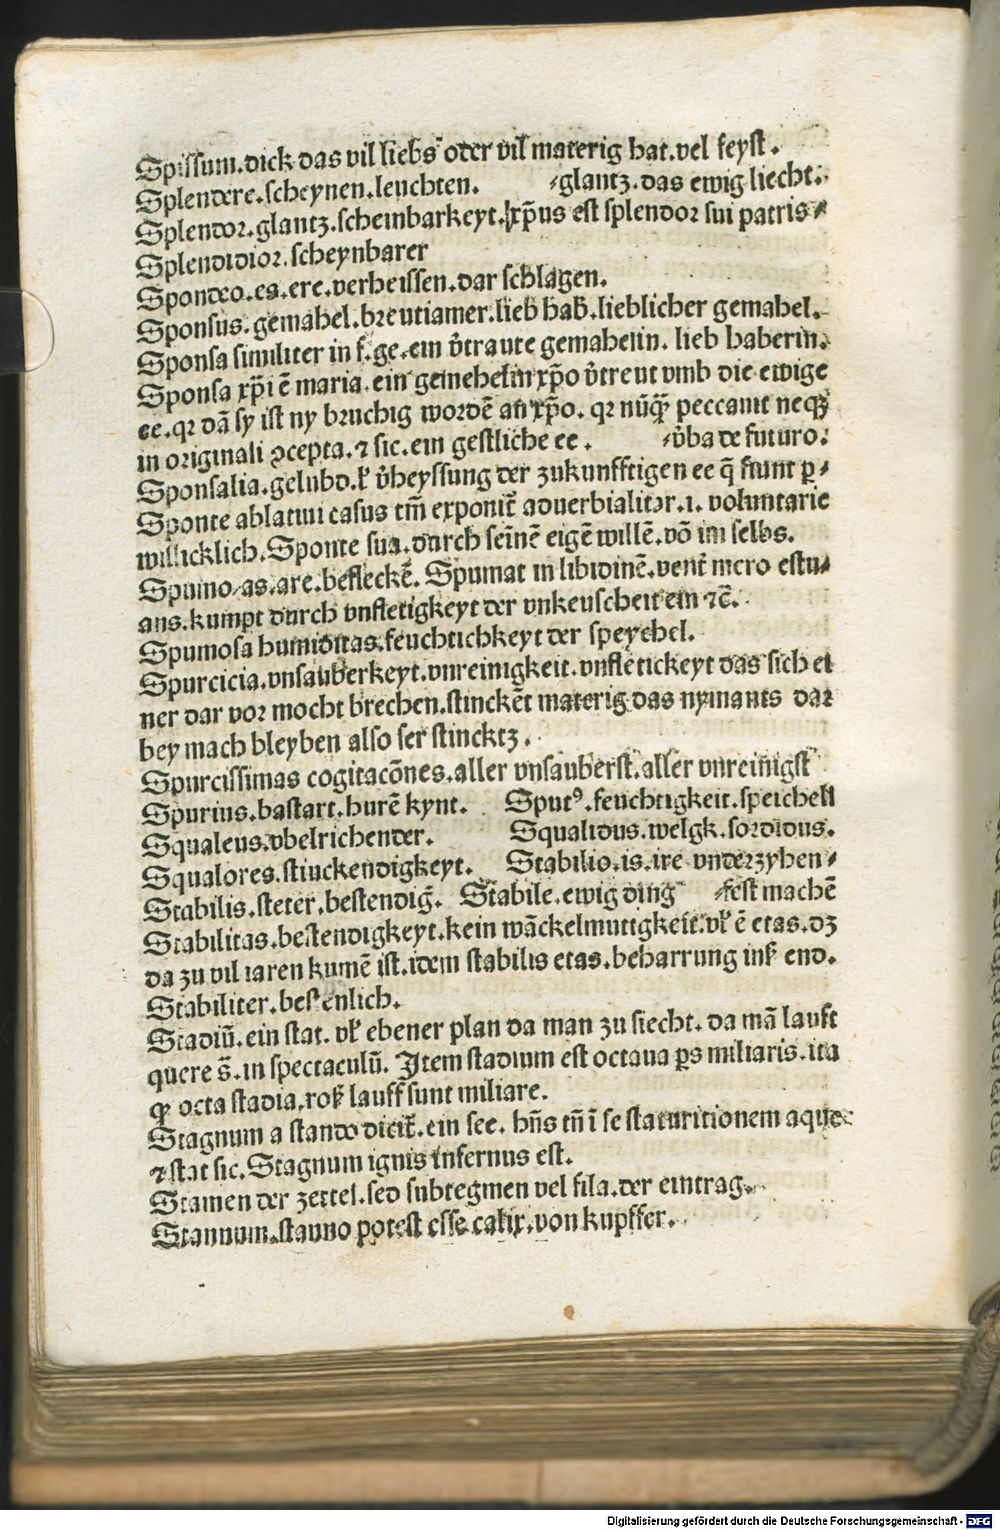 Spissum.dick das vil liebs oder vil materig hat.vel feyst.
Splendere.scheynen.leuchten. ⸗glantz.das ewig liecht.
Splendor.glantz.scheinbarkeyt.xp̄us est splendor sui patris⸗
Splendidior.scheynbarer
Spondeo.es.ere.verheissen.dar schlagen.
Sponsus.gemahel.breutiamer.lieb hab.lieblicher gemahel.
Sponsa similiter in f.ge.ein v̓traute gemahelin. lieb haberin.
Sponsa xp̄i ē maria.ein gemehelin xp̄o v̓treut vmb die ewige
ee.qꝛ dā sy ist ny bruchig wordē an xp̄o. qꝛ nūq̄ʒ peccauit neqʒ
in originali ꝯcepta.⁊ sic.ein gestliche ee. ⸗v̓ba de futuro.
Sponsalia.gelubd.ꝉ v̓heyssung der zukunfftigen ee q̄ fiunt ꝑ⸗
Sponte ablatiui casus tm̄ exponit̄ aduerbialiter.i. voluntarie
willicklich.Sponte sua.durch seinē eigē willē.vō im selbs.
Spumo.as.are.befleckē. Spumat in libidinē.vent̄ mero estu⸗
ans.kumpt durch vnfletigkeyt der vnkeuscheit ein ⁊c̄.
Spumosa humiditas.feuchtichkeyt der speychel.
Spurcicia.vnsauberkeyt.vnreinigkeit.vnfletickeyt das sich ei
ner dar vor mocht brechen.stinckēt materig das nymants dar
bey mach bleyben also ser stincktz.
Spurcissimas cogitacōnes.aller vnsauberst.aller vnreinigst
Spurius.bastart.hurē kynt. Sputꝰ.feuchtigkeit.speichell
Squaleus.vbelrichender. Squalidus.welgk.sordidus.
Squalores.stiuckendigkeyt. Stabilio.is.ire vnderzyhen⸗
Stabilis.steter.bestendig. Stabile.ewig ding ⸗fest machē
Stabilitas.bestendigkeyt.kein wāckelmutigkeit.vꝉ ē etas.dʒ
da zu vil iaren kumē ist.idem stabilis etas.beharrung inß end.
Stabiliter.bestenlich.
Stadiū.ein stat. vꝉ ebener plan da man zu siecht.da mā lauft
quere s̄.in spectaculū. Item stadium est octaua ꝑs miliaris.ita
ꝙ octa stadia.roß lauff sunt miliare.
Stagnum a stando dicit̄.ein see. hn̄s tn̄ ī se staturitionem aque
⁊ stat sic.Stagnum ignis infernus est.
Stamen der zettel.sed subtegmen vel fila.der eintrag.
Stannum.stauno potest esse calix.von kupffer.
Digitalisierung gefördert durch die Deutsche Forschungsgemeinschaft - DFG